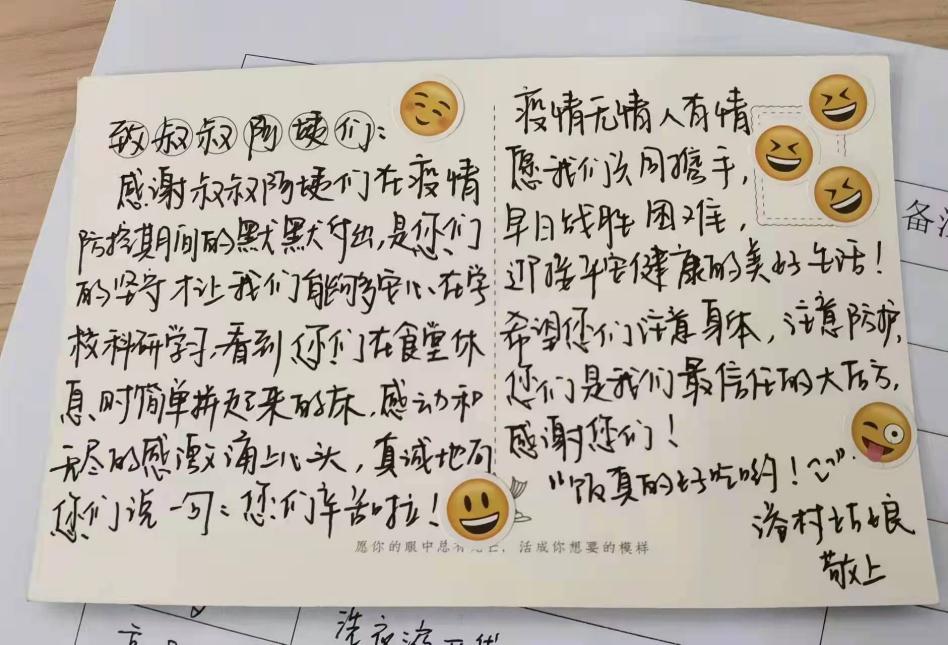 致叔叔阿姨们:
感谢叔叔阿姨们在疫情
防控期间的默默付出,是您们
的坚守才让我们能够安心在学
校科研学习,看到您们在食堂休
息时简单拼起来的床,感动和
无尽的感激涌上心头,真诚地向
您们说一句:您们辛苦啦!
疫情无情人有情
愿我们共同携手,
早日战胜困难,
迎接平安健康的美好生活!
希望您们注意身体,注意防护,
您们是我们最信任的大后方,
感谢您们!
“饭真的好吃哟!”
村姑娘
敬上
愿你的眼中总有光芒,活成你想要的模样
备注